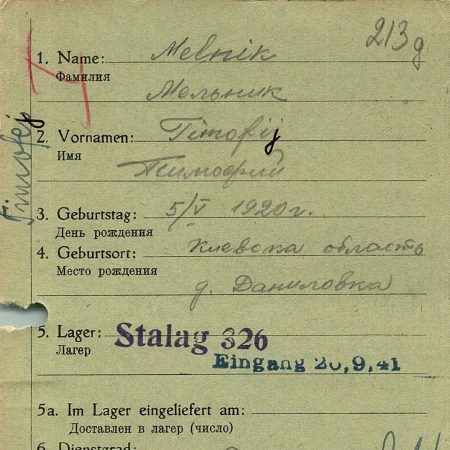 213g
1. Name: Melnik
Фамилия
Мельник
Timofej
2. Vornamen: Timofij
Имя
Тимофий
3. Geburtstag: 5/V 1920г.
День рождения
4. Geburtsort: Киевска область
Место рождения
д. Даниловка
5. Lager: Stalag 326
Лагер
Eingang 20,9,41
5a. Im Lager eingeliefert am:
Доставлен в лагер (число)
6. Dienstgrad: